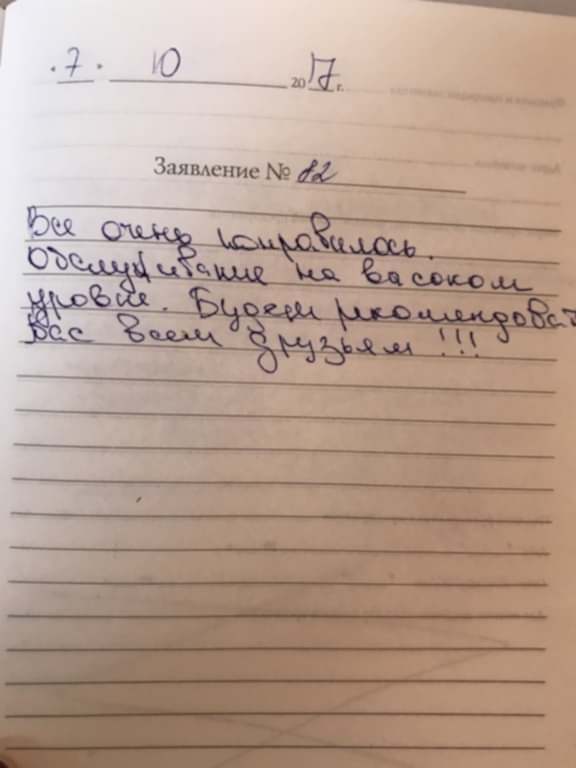 "7" 10 2017 г.
Заявление № 82
Все очень понравилось.
Обслуживание на васоком
уровне. Будем рекомендоват
Вас всем друзьям !!!